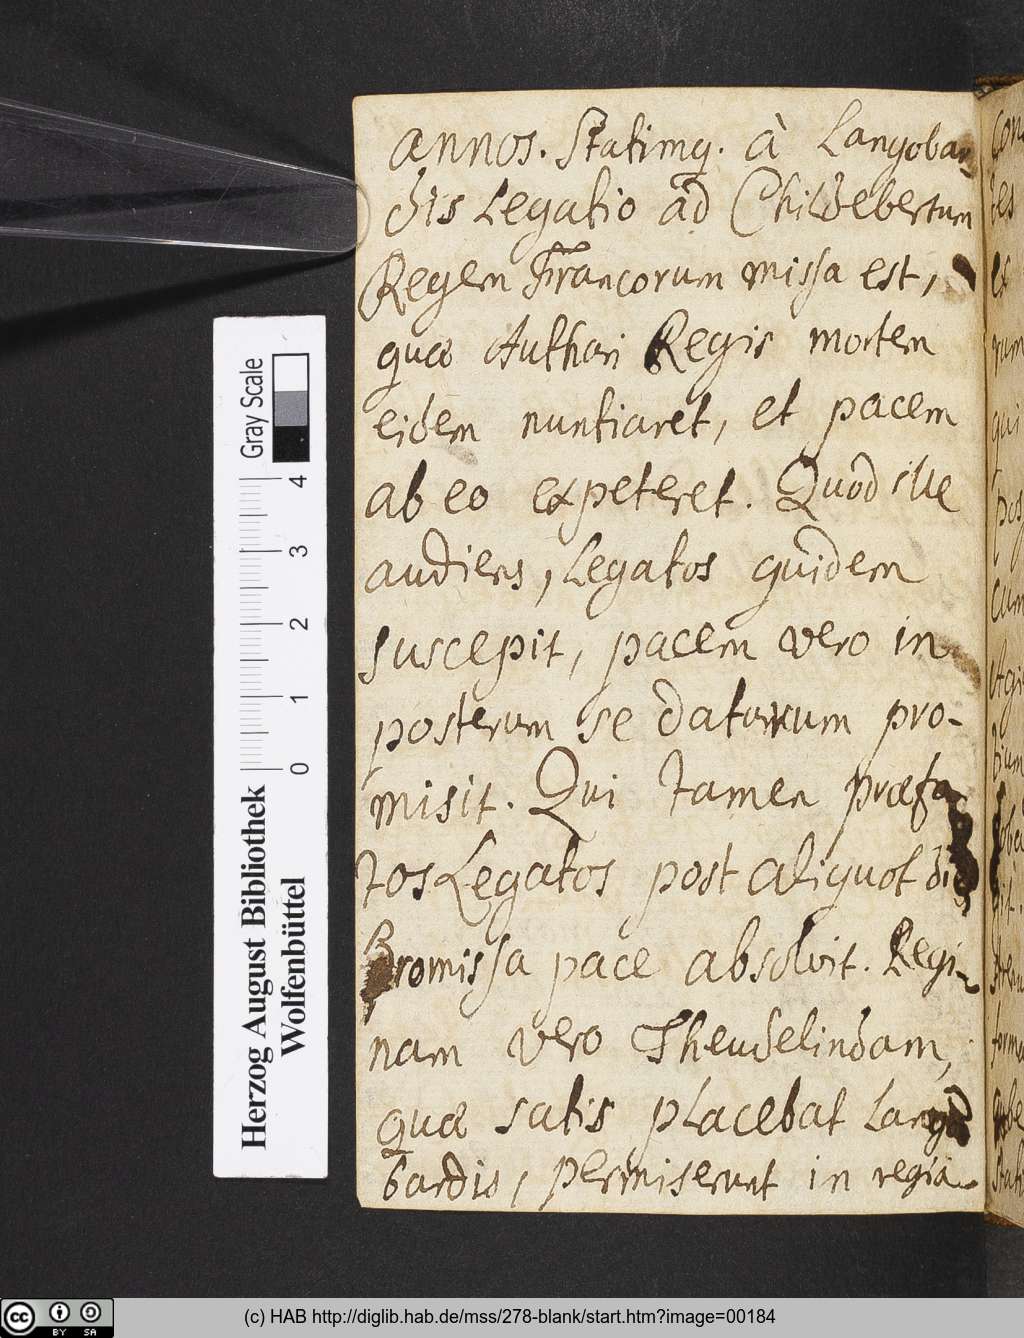 annos. Statimq. à Langobar
dis Legatio ad Childebertum
Regem Francorum missa est,
quæ Authari Regis mortem
eidem nuntiaret, et pacem
ab eo expeteret. Quod ille
audiens, Legatos quidem
suscepit, pacem vero in
posterum se daturum pro-
misit. Qui tamen præfa
tos Legatos post aliquot die
Promissa pace absolvit. Regi-
nam vero Theudelindam,
quæ satis placebat Lango
bardis, permiserunt in regiā
Gray Scale
4
3
2
1
0
Herzog August Bibliothek
Wolfenbüttel
cc BY SA
(c) HAB http://diglib.hab.de/mss/278-blank/start.htm?image=00184